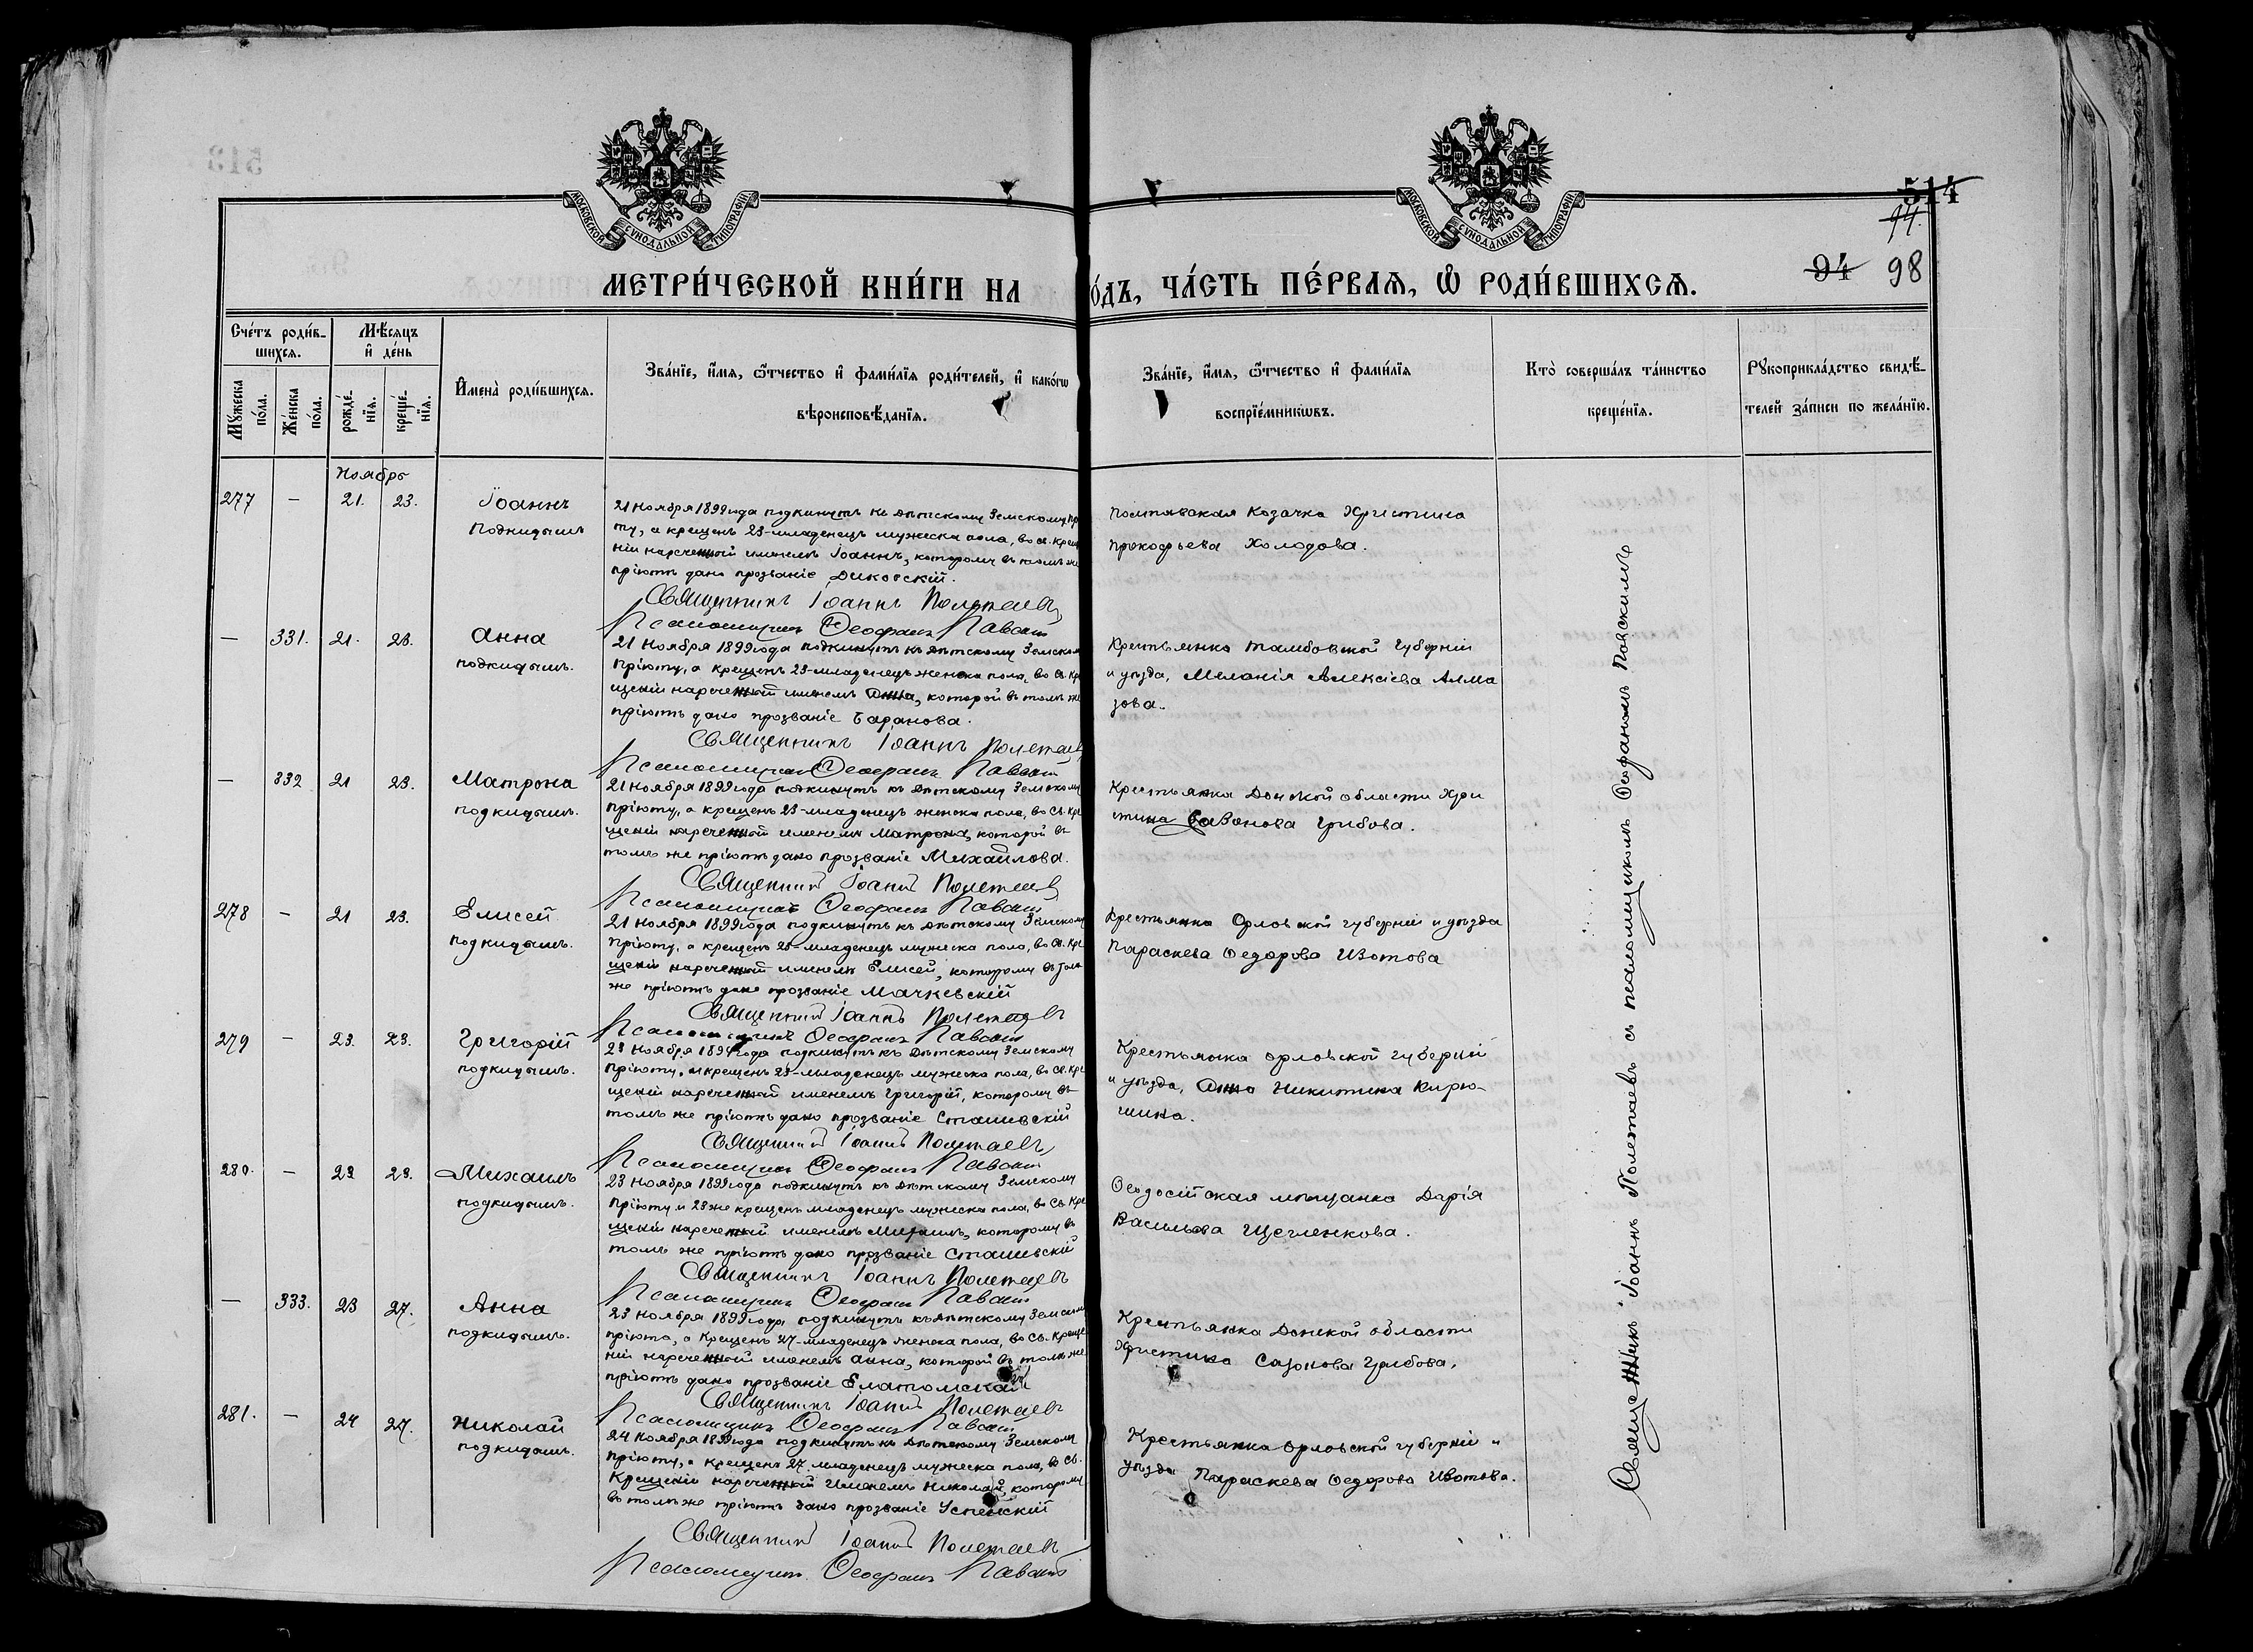 513
МОСКОВСКОЙ СѴНОДАЛЬНОЙ ТИПОГРАФІИ
МОСКОВСКОЙ СѴНОДАЛЬНОЙ ТИПОГРАФІИ
514
94.
94 98
МЕТРИ́ЧЕСКОЙ КНИ́ГИ НА
О́ДЪ, ЧА́СТЬ ПЕ́РВАѦ, Ѡ РОДИ́ВШИХСѦ.
Сче́тъ роди́в-
шихсѧ.
Мѣ́сѧцъ
и҆ де́нь
Мꙋжеска
по́ла.
Же́нска
по́ла.
рожде́-
нїѧ.
креще́-
нїѧ.
И҆мена̀ роди́вшихсѧ.
Зва́нїе, и҆́мѧ, ѻ҆́тчество и҆ фами́лїѧ роди́телей, и҆ како́гѡ
вѣроисповѣ́данїѧ.
Зва́нїе, и҆́мѧ, ѻ҆́тчество и҆ фами́лїѧ
воспрїе́мникѡвъ.
Кто̀ соверша́лъ та́инство
креще́нїѧ.
Рꙋкоприкла́дство свидѣ́-
телей за́писи по жела́нїю.
Ноябрь
277 — 21. 23. Іоаннъ
подкидышъ
21 Ноября 1899 года подкинутъ къ Дѣтскому Земскому прі
ту, а крещенъ 23-младенецъ мужеска пола, во св. креще
ніи нареченный именемъ Іоаннъ, которому въ томъ же
пріютѣ дано прозваніе Диковскій.
Священникъ Іоаннъ Полетаевъ
Псаломщикъ Ѳеофанъ Павскій
Полтавская Козачка Христина
Прокофьева Холодова.
— 331. 21. 23. Анна
подкидышъ.
21 Ноября 1899 года подкинутъ къ Дѣтскому Земском
Пріюту, а крещенъ 23-младенецъ женска пола, во св. кре
щеніи нареченный именемъ Анна, которой въ томъ же
пріютѣ дано прозваніе Баранова.
Священникъ Іоаннъ Полетаев
Псаломщикъ Ѳеофанъ Павскій
Крестьянка Тамбовской губерніи
и уѣзда, Меланія Алексіева Алма
зова.
— 332 21 23. Матрона
подкидышъ.
21 Ноября 1899 года подкинутъ къ Дѣтскому Земскому
Пріюту, а крещенъ 23-младенецъ женска пола, во св. кре
щеніи нареченный именемъ Матрона, которой въ
томъ же пріютѣ дано прозваніе Михайлова.
Священникъ Іоаннъ Полетаевъ
Псаломщикъ Ѳеофанъ Павскій
Крестьянка Донской области Хри
стина Сазонова Грибова.
278 — 21 23. Елисей
подкидышъ.
21 Ноября 1899 года подкинутъ къ Дѣтскому Земскому
Пріюту, а крещенъ 23-младенецъ мужеска пола, во св. кре
щеніи нареченный именемъ Елисей, которому въ том
же пріютѣ дано прозваніе Мачкевскій
Священникъ Іоаннъ Полетаевъ
Псаломщикъ Ѳеофанъ Павскій
Крестьянка Орловской губерніи и уѣзда
Параскева Ѳедорова Изотова
279 — 23. 23. Григорій
подкидышъ.
23 Ноября 1899 года подкинутъ къ Дѣтскому Земскому
Пріюту, а крещенъ 23-младенецъ мужеска пола, во св. кре
щеніи нареченный именемъ Григорій, которому въ
томъ же пріютѣ дано прозваніе Сташевскій
Священникъ Іоаннъ Полетаевъ
Псаломщикъ Ѳеофанъ Павскій
Крестьянка Орловской губерніи
и уѣзда, Анна Никитина Кирю-
шина.
280. — 23 23. Михаилъ
подкидышъ.
23 Ноября 1899 года подкинутъ къ Дѣтскому Земскому
Пріюту и 23 же крещенъ младенецъ мужеска пола, во св. кре
щеніи нареченный именемъ Михаилъ, которому въ
томъ же пріютѣ дано прозваніе Сташевскій
Священникъ Іоаннъ Полетаевъ
Псаломщикъ Ѳеофанъ Павскій
Ѳеодосійская мѣщанка Дарія
Васильева Щегленкова.
— 333. 23 27. Анна
подкидышъ.
23 Ноября 1899 года, подкинутъ къ Дѣтскому Земском
пріюта, а крещенъ 27-младенецъ женска пола, во св. креще
ніи нареченной именемъ Анна, которой въ томъ же
пріютѣ дано прозваніе Елатомская
Священникъ Іоаннъ Полетаевъ
Псаломщикъ Ѳеофанъ Павскій
Крестьянка Донской области
Христина Сазонова Грибова.
281. — 24 27. Николай
подкидышъ.
24 Ноября 1899 года подкинутъ къ Дѣтскому Земскому
пріюту, а крещенъ 27 младенецъ мужеска пола, во св.
Крещеніи нареченный именемъ Николай, которому
въ томъ же пріютѣ дано прозваніе Успенскій
Священникъ Іоаннъ Полетаевъ
Псаломщикъ Ѳеофанъ Павскій
Крестьянка Орловской губерніи и
уѣзда Параскева Ѳедорова Изотова.
Священникъ Іоаннъ Полетаевъ съ псаломщикомъ Ѳеофаномъ Павскимъ